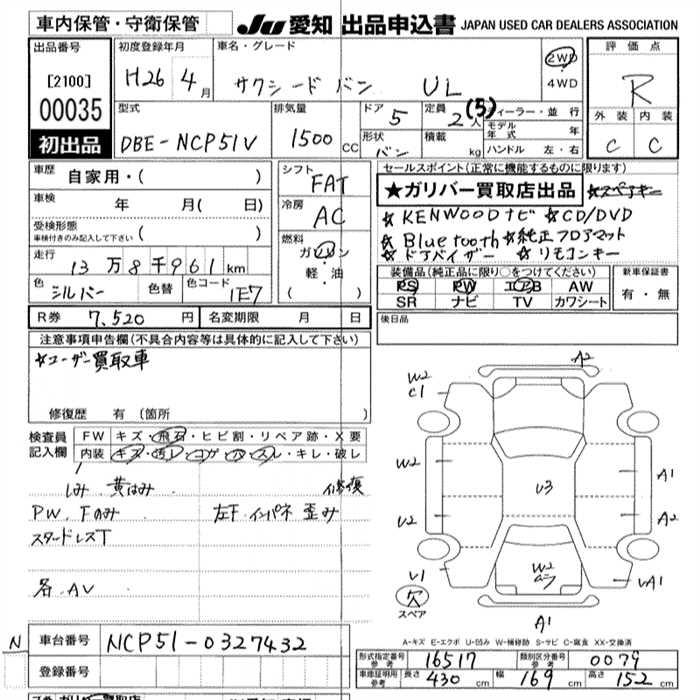 車内保管・守衛保管
JU 愛知 出品申込書 JAPAN USED CAR DEALERS ASSOCIATION
出品番号
[2100]
00035
初出品
初度登録年月
H26 4月
車名・グレード
サクシード バン UL
2WD
4WD
評価点
R
外装 内装
C C
型式
DBE-NCP51V
排気量
1500 CC
ドア 5
形状 バン
定員 2人 (5)
積載 kg
ディーラー・並行
モデル年式 年
ハンドル 左・右
車歴 自家用・( )
車検 年 月( 日)
受検形態
車検付きのみ記入して下さい ( )
走行 13万8千961km
色 シルバー 色替 色コード 1E7
シフト FAT
冷房 AC
燃料 ガソリン
軽・油
( )
セールスポイント(正常に機能するものに限ります)
★ガリバー買取店出品 ☆スペアキー
☆KENWOODナビ ☆CD/DVD
☆Bluetooth ☆純正フロアマット
☆ドアバイザー ☆リモコンキー
装備品(純正品に限り○をつけてください)
PS PW エアB AW
SR ナビ TV カワシート
新車保証書
有・無
R券 7,520円 名変期限 月 日
後日品
注意事項申告欄(不具合内容等は具体的に記入して下さい)
☆ユーザー買取車
修復歴 有 (箇所 )
検査員記入欄
FW キズ・飛石・ヒビ割・リペア跡・X要
内装 キズ・汚レ・コゲ・穴・スレ・キレ・破レ
しみ、黄ばみ 修復
PW、Fのみ 左F インパネ 歪み
スタッドレスT
各、AV
A2
W2
C1
W2
U2
U1
U3
A1
A2
UA1
W2
A1
欠
スペア
A-キズ E-エクボ U-凹み W-補修跡 S-サビ C-腐食 XX-交換済
N 車台番号 NCP51-0327432
登録番号
形式指定番号 参考 16517 類別区分番号 参考 0079
車庫証明用 参考 長さ 430cm 幅 169cm 高さ 152cm